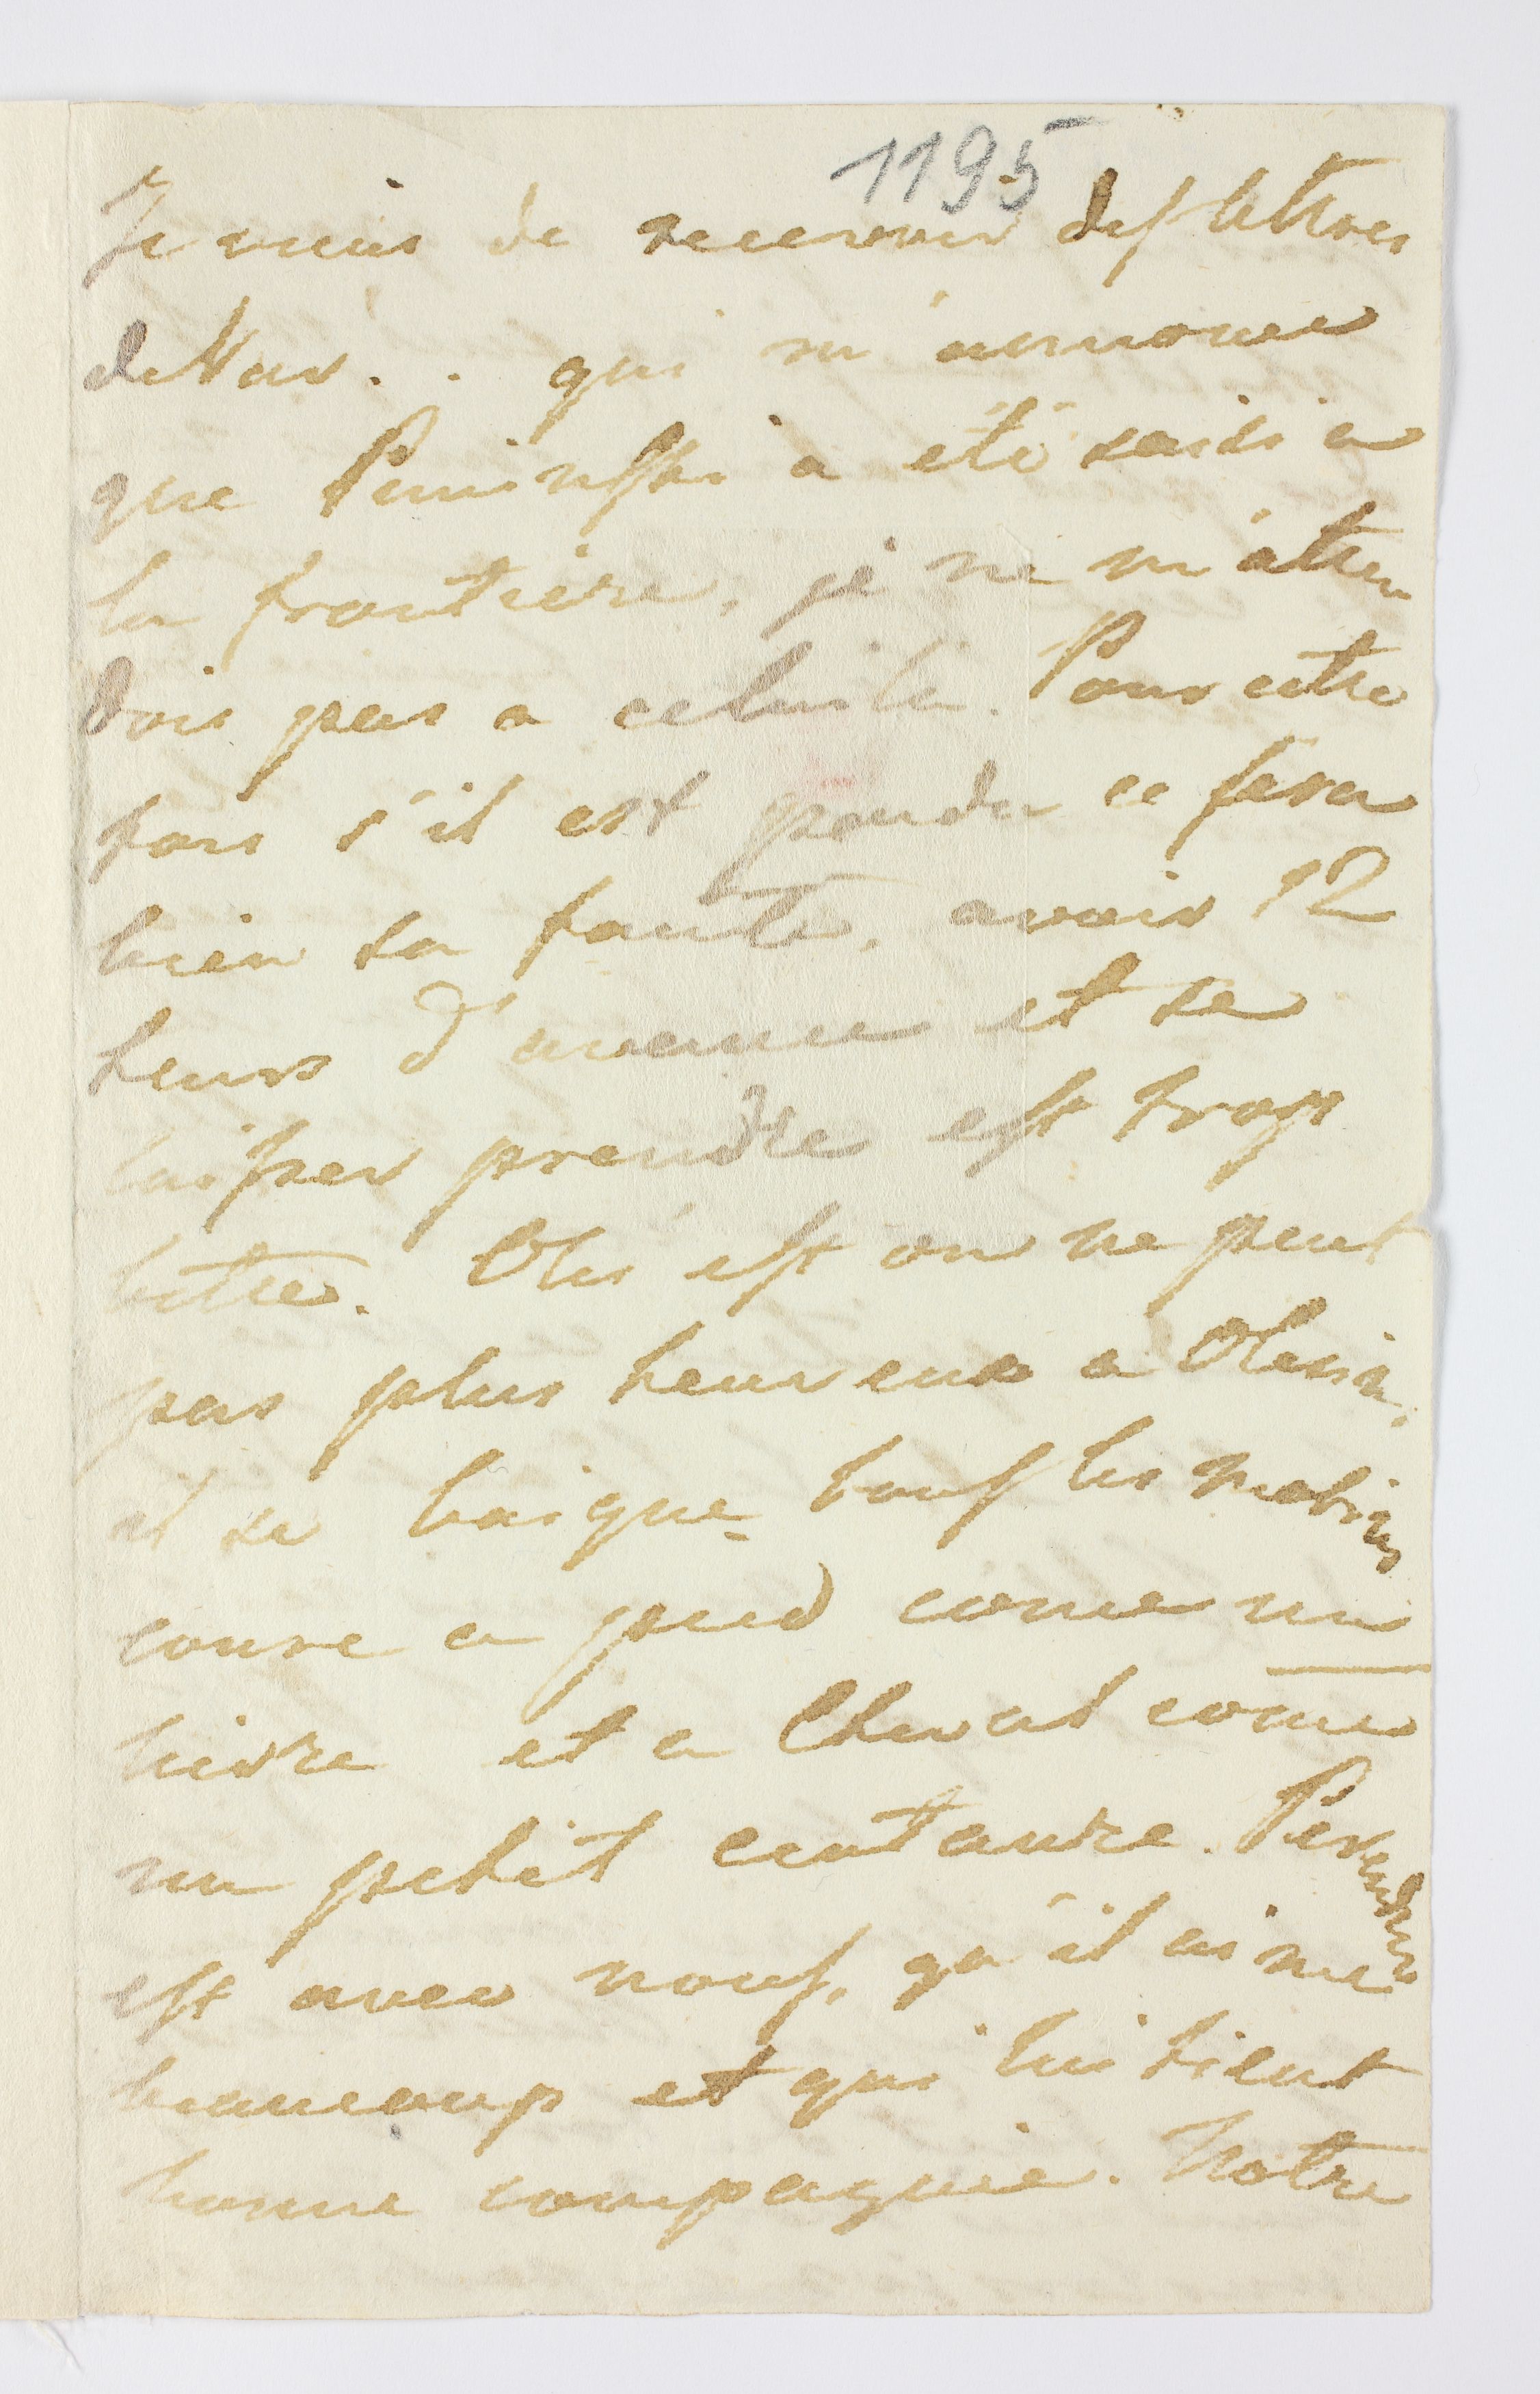 1195
Je viens de recevoir des lettres
de Var. . qui m'annonce
que Puninski a été saisi a
la frontière, je ne m'atten
dois pas a celui la. Pour cette
fois s'il est pendu ce sera
bien sa faute, avoir 12
heurs d'avance et se
laisser prendre est trop
bette. Olis est on ne peut
pas plus heureux a Olesin,
il se baigne tous les matins
coure a pied come un
lievre et a Cheval come
un petit centaure.
est avec nous, qu'il aime
beaucoup et qui lui tient
bonne compagnie. Notre